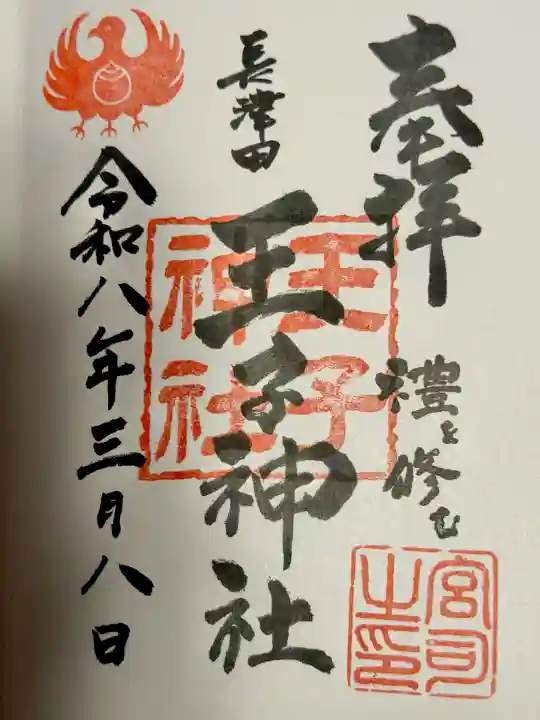 奉拝
禮を修む
宮司之印
長津田
王子神社
王子神社
令和八年三月八日